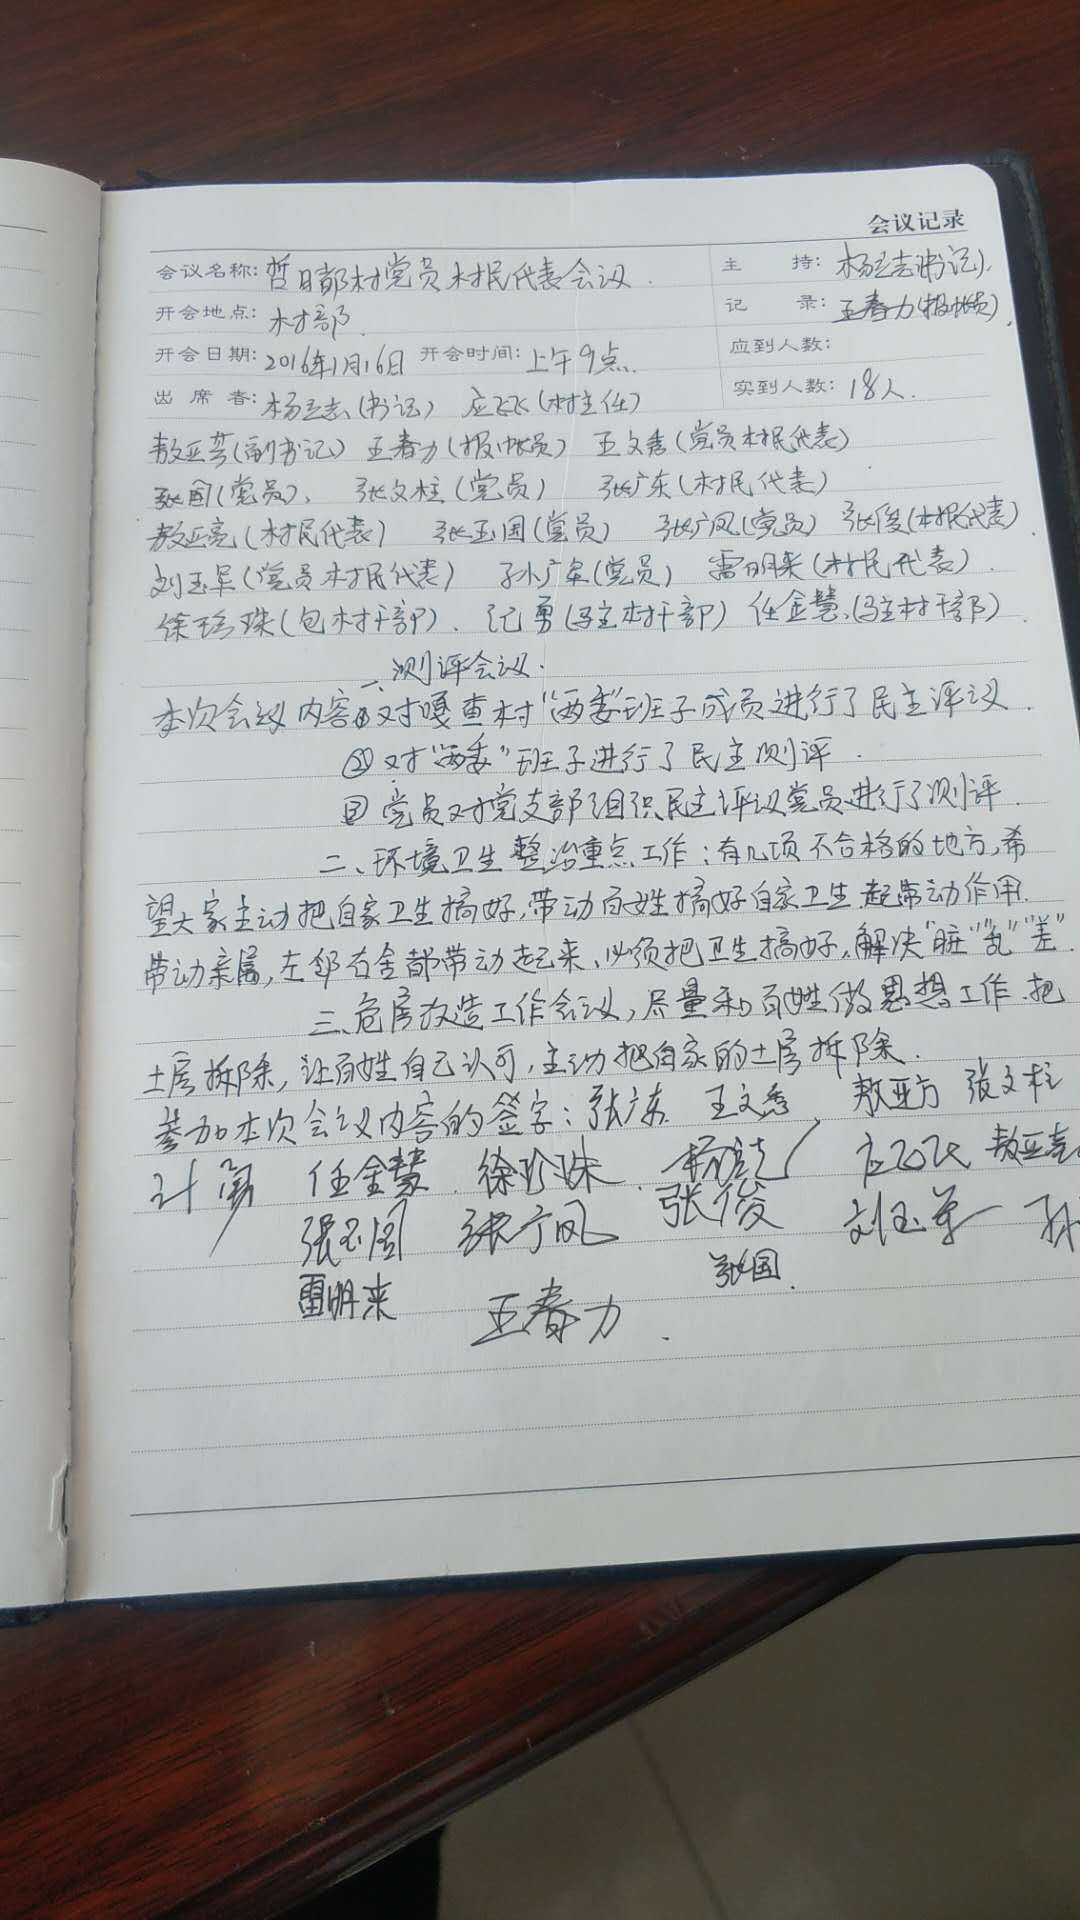 会议记录
会议名称: 哲日都村党员村民代表会议. 主 持: 杨立志(书记).
开会地点: 村部. 记 录: 王春力(报帐员).
开会日期: 2016年1月16日 开会时间: 上午9点. 应到人数:
出 席 者: 杨立志(书记) 应飞飞(村主任) 实到人数: 18人.
敖亚芳(副书记) 王春力(报帐员) 王文秀(党员村民代表)
张国(党员)、 张文柱(党员) 张广东(村民代表)
敖亚亮(村民代表) 张玉国(党员) 张广凤(党员) 张俊(村民代表)
刘玉军(党员村民代表) 孙广军(党员) 雷明来(村民代表).
徐珍珠(包村干部)、 记勇(驻村干部) 任金慧、(驻村干部).
一、测评会议.
本次会议内容①对嘎查村"两委"班子成员进行了民主评议
②对"两委"班子进行了民主测评.
③党员对党支部组织民主评议党员进行了测评
二、环境卫生整治重点工作:有几项不合格的地方,希
望大家主动把自家卫生搞好,带动百姓搞好自家卫生.起带动作用.
带动亲属,左邻右舍都带动起来、必须把卫生搞好,解决"脏""乱""差"
三、危房改造工作会议,尽量和百姓做思想工作.把
土房拆除,让百姓自己认可,主动把自家的土房拆除.
参加本次会议内容的签字:张广东 王文秀 敖亚方 张文柱
计勇 任金慧 徐珍珠 杨立志 应飞飞 敖亚亮
张玉国 张广凤 张俊 刘玉军 孙
雷明来 张国
王春力